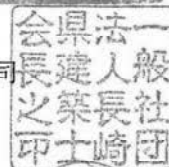 司
一般社団
法人長崎
県建築士
会長之印